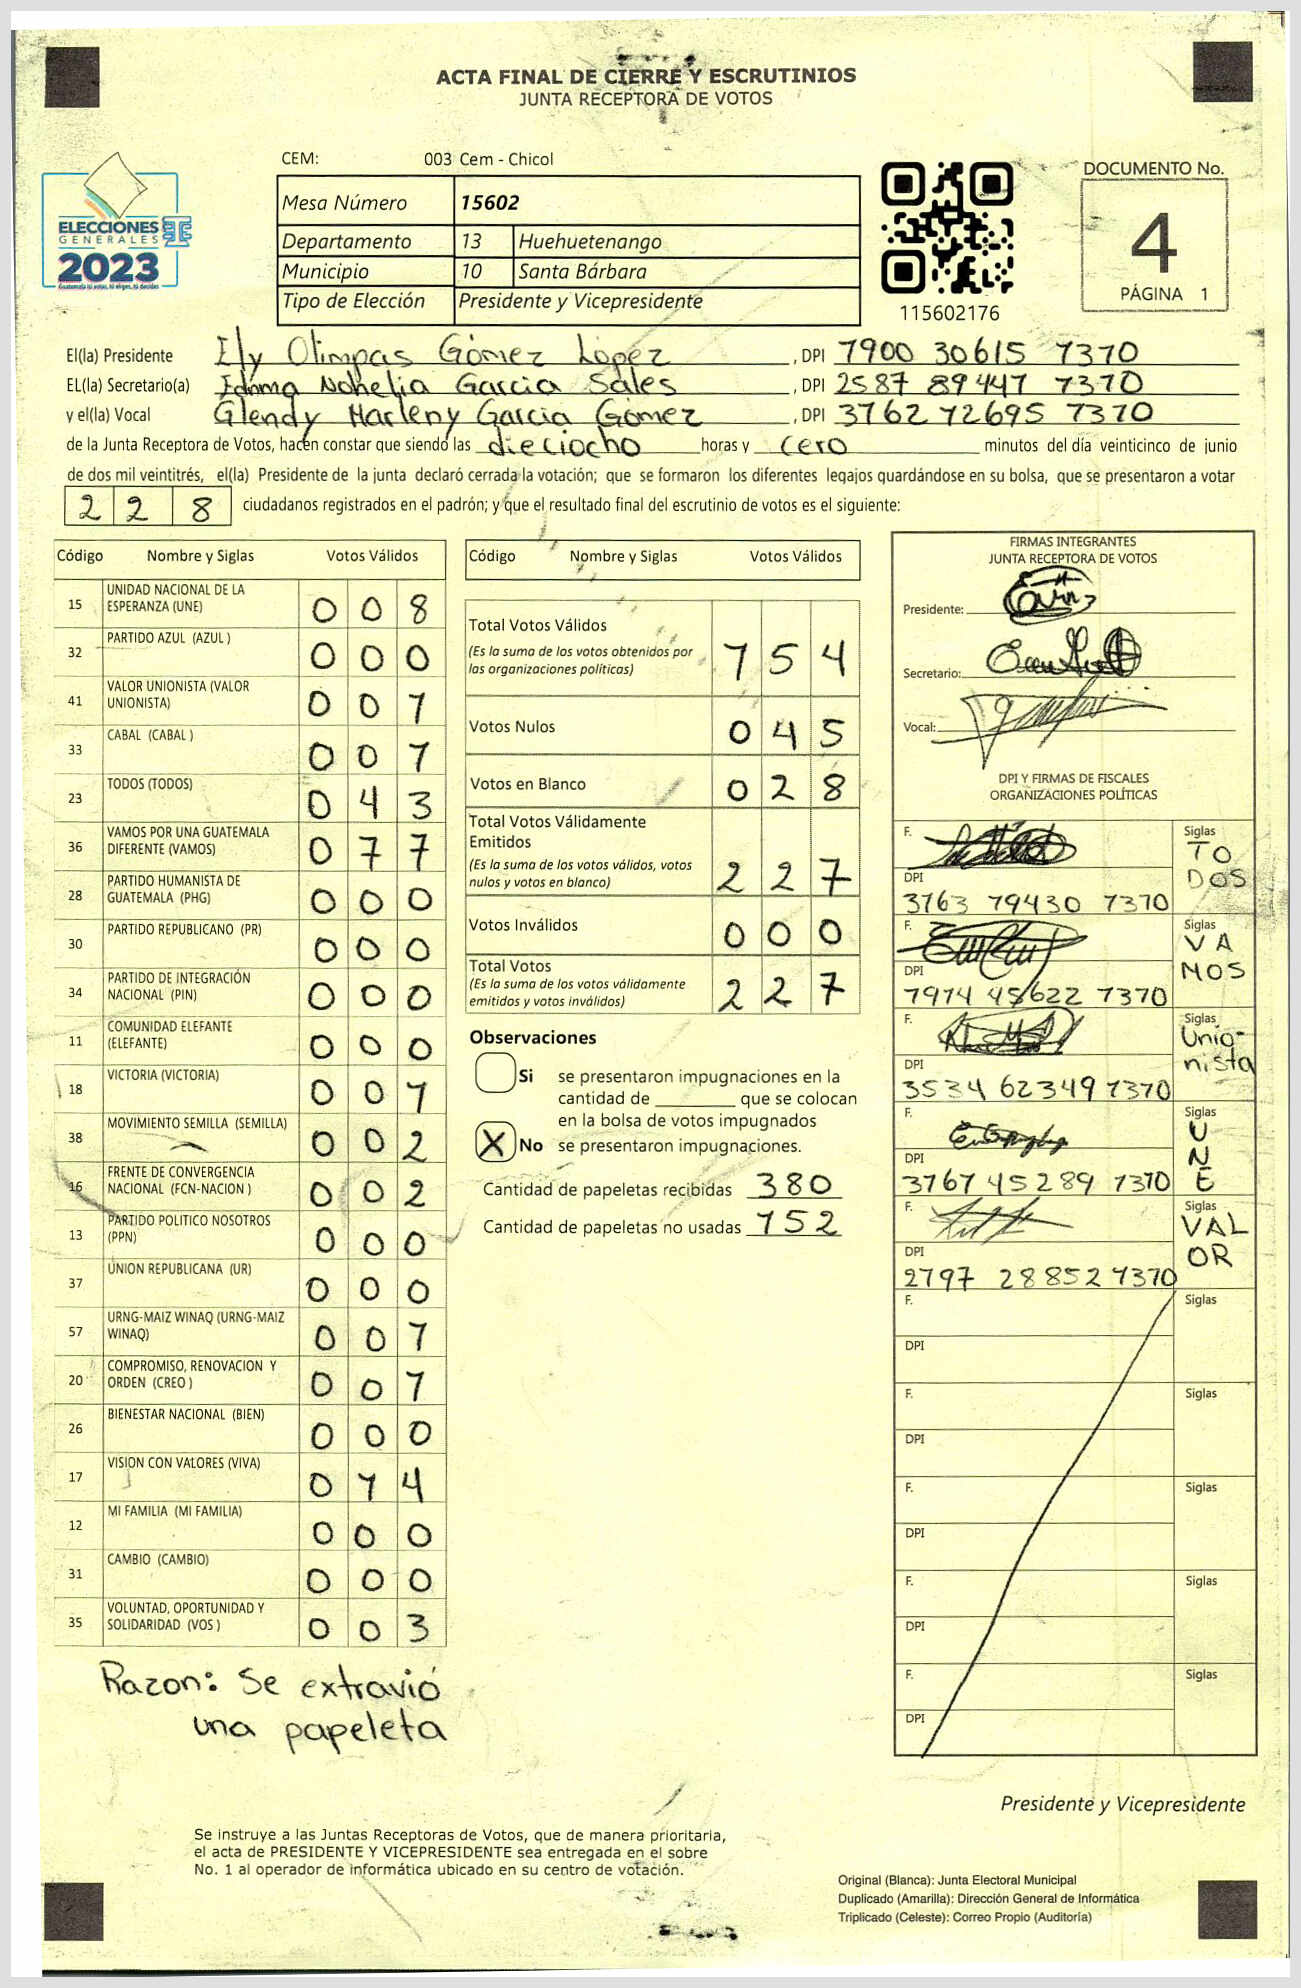 ACTA FINAL DE CIERRE Y ESCRUTINIOS
JUNTA RECEPTORA DE VOTOS
CEM: 003 Cem - Chicol
ELECCIONES
GENERALES
2023
Mesa Número 15602
Departamento 13 Huehuetenango
Municipio 10 Santa Bárbara
Tipo de Elección Presidente y Vicepresidente
115602176
DOCUMENTO No.
4
PÁGINA 1
El(la) Presidente Ely Olimpas Gómez López , DPI 1900 30615 1310
EL(la) Secretario(a) Idnma Nohelia Garcia Sales , DPI 2587 89447 1310
y el(la) Vocal Glendy Marleny Garcia Gómez , DPI 3162 12695 1310
de la Junta Receptora de Votos, hacen constar que siendo las dieciocho horas y cero minutos del día veinticinco de junio
de dos mil veintitrés, el(la) Presidente de la junta declaró cerrada la votación; que se formaron los diferentes legajos quardándose en su bolsa, que se presentaron a votar
2 2 8 ciudadanos registrados en el padrón; y que el resultado final del escrutinio de votos es el siguiente:
Código Nombre y Siglas Votos Válidos
15 UNIDAD NACIONAL DE LA
ESPERANZA (UNE) 0 0 8
32 PARTIDO AZUL (AZUL ) 0 0 0
41 VALOR UNIONISTA (VALOR
UNIONISTA) 0 0 1
33 CABAL (CABAL ) 0 0 1
23 TODOS (TODOS) 0 4 3
36 VAMOS POR UNA GUATEMALA
DIFERENTE (VAMOS) 0 7 7
28 PARTIDO HUMANISTA DE
GUATEMALA (PHG) 0 0 0
30 PARTIDO REPUBLICANO (PR) 0 0 0
34 PARTIDO DE INTEGRACIÓN
NACIONAL (PIN) 0 0 0
11 COMUNIDAD ELEFANTE
(ELEFANTE) 0 0 0
18 VICTORIA (VICTORIA) 0 0 1
38 MOVIMIENTO SEMILLA (SEMILLA) 0 0 2
16 FRENTE DE CONVERGENCIA
NACIONAL (FCN-NACION ) 0 0 2
13 PARTIDO POLITICO NOSOTROS
(PPN) 0 0 0
37 UNION REPUBLICANA (UR) 0 0 0
57 URNG-MAIZ WINAQ (URNG-MAIZ
WINAQ) 0 0 1
20 COMPROMISO, RENOVACION Y
ORDEN (CREO ) 0 0 1
26 BIENESTAR NACIONAL (BIEN) 0 0 0
17 VISION CON VALORES (VIVA) 0 1 4
12 MI FAMILIA (MI FAMILIA) 0 0 0
31 CAMBIO (CAMBIO) 0 0 0
35 VOLUNTAD, OPORTUNIDAD Y
SOLIDARIDAD (VOS ) 0 0 3
Razon: Se extravió
una papeleta
Código Nombre y Siglas Votos Válidos
Total Votos Válidos
(Es la suma de los votos obtenidos por
las organizaciones políticas) 1 5 4
Votos Nulos 0 4 5
Votos en Blanco 0 2 8
Total Votos Válidamente
Emitidos
(Es la suma de los votos válidos, votos
nulos y votos en blanco) 2 2 7
Votos Inválidos 0 0 0
Total Votos
(Es la suma de los votos válidamente
emitidos y votos inválidos) 2 2 7
Observaciones
Si se presentaron impugnaciones en la
cantidad de ________ que se colocan
en la bolsa de votos impugnados
X No se presentaron impugnaciones.
Cantidad de papeletas recibidas 380
Cantidad de papeletas no usadas 152
FIRMAS INTEGRANTES
JUNTA RECEPTORA DE VOTOS
Presidente:
Secretario:
Vocal:
DPI Y FIRMAS DE FISCALES
ORGANIZACIONES POLÍTICAS
F. Siglas
TO
DOS
DPI
3163 19430 1310
F. Siglas
VA
MOS
DPI
1914 45622 1310
F. Siglas
Unio-
nista
DPI
3534 62349 1310
F. Siglas
U
N
E
DPI
3161 45289 1310
F. Siglas
VAL
OR
DPI
2797 28852 1310
F. Siglas
DPI
F. Siglas
DPI
F. Siglas
DPI
F. Siglas
DPI
F. Siglas
DPI
Presidente y Vicepresidente
Se instruye a las Juntas Receptoras de Votos, que de manera prioritaria,
el acta de PRESIDENTE Y VICEPRESIDENTE sea entregada en el sobre
No. 1 al operador de informática ubicado en su centro de votación.
Original (Blanca): Junta Electoral Municipal
Duplicado (Amarilla): Dirección General de Informática
Triplicado (Celeste): Correo Propio (Auditoría)